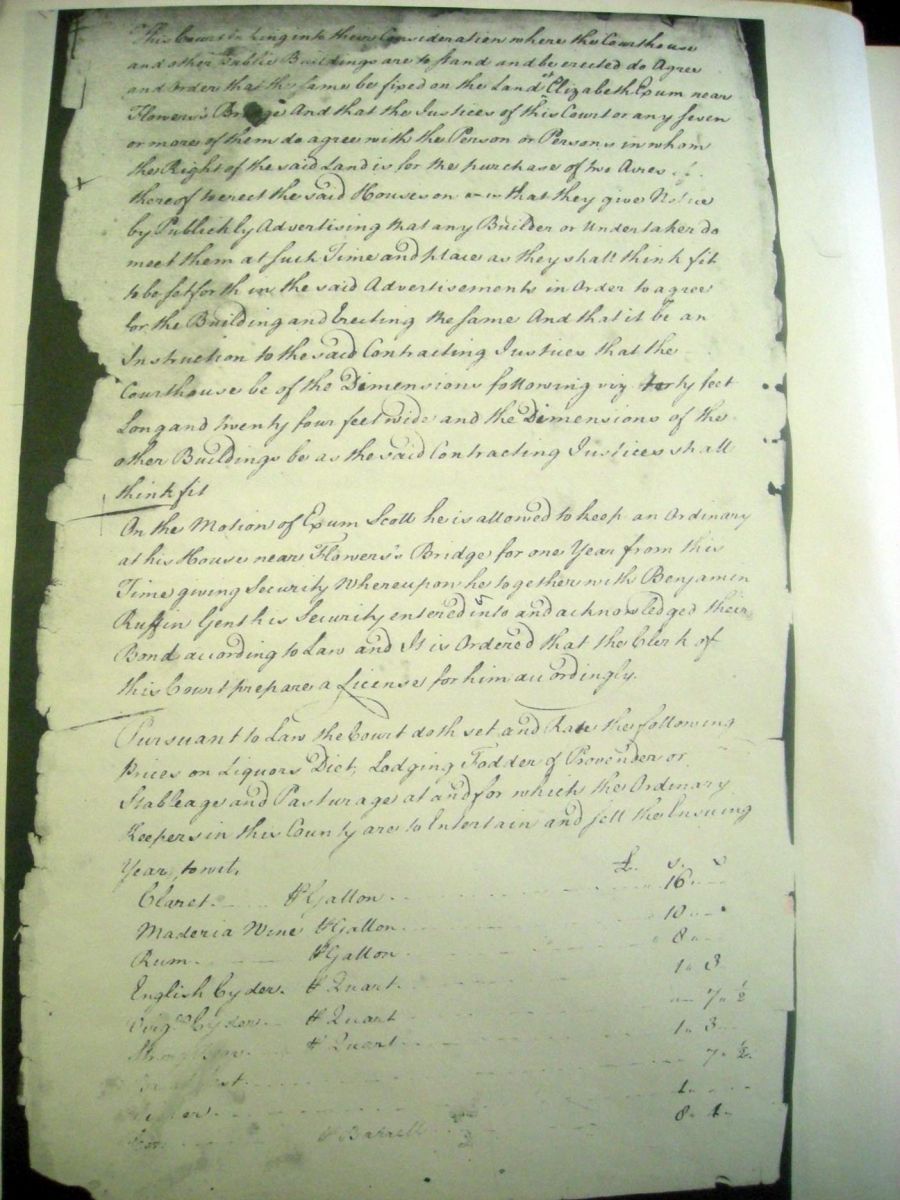 This Court taking into their Consideration where the Courthouse
and other Publick Buildings are to stand and be erected do Agree
and Order that the same be fixed on the Land of Elizabeth Exum near
Flowers's Bridge And that the Justices of this Court or any seven
or more of them do agree with the Person or Persons in whom
the Right of the said Land is for the purchase of two Acres
thereof to erect the said Houses on and that they give Notice
by Publickly Advertising that any Builder or Undertaker do
meet them at such Time and place as they shall think fit
to be set forth in the said Advertisements in Order to agree
for the Building and Erecting the same And that it be an
Instruction to the said Contracting Justices that the
Courthouse be of the Dimensions following viz. forty feet
Long and twenty four feet wide and the Dimensions of the
other Buildings be as the said Contracting Justices shall
think fit
On the Motion of Exum Scott he is allowed to keep an Ordinary
at his House near Flowers's Bridge for one Year from this
Time giving Security Whereupon he together with Benjamin
Ruffin Gent his Security entered into and acknowledged their
Bond according to Law and It is Ordered that the Clerk of
this Court prepare a License for him accordingly.
Pursuant to Law the Court doth set and Rate the following
Prices on Liquors Diet, Lodging Fodder of Provender or
Stableage and Pasturage at and for which the Ordinary
Keepers in this County are to Entertain and sell the Ensuing
Year, to wit, £. s.
Claret. ⅌ Gallon 16
Maderia Wine ⅌ Gallon 10
Rum. ⅌ Gallon 8
English Cyder. ⅌ Quart. 1 3
Virga. Cyder. ⅌ Quart 7 ½
⅌ Quart 1 3
7 ½
1
⅌ Barrell 8